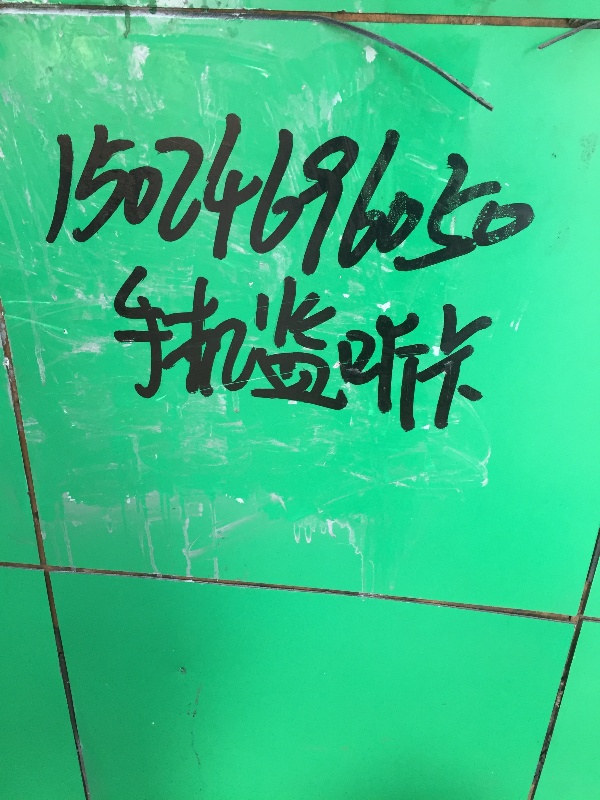 15024696050
手机监听卡